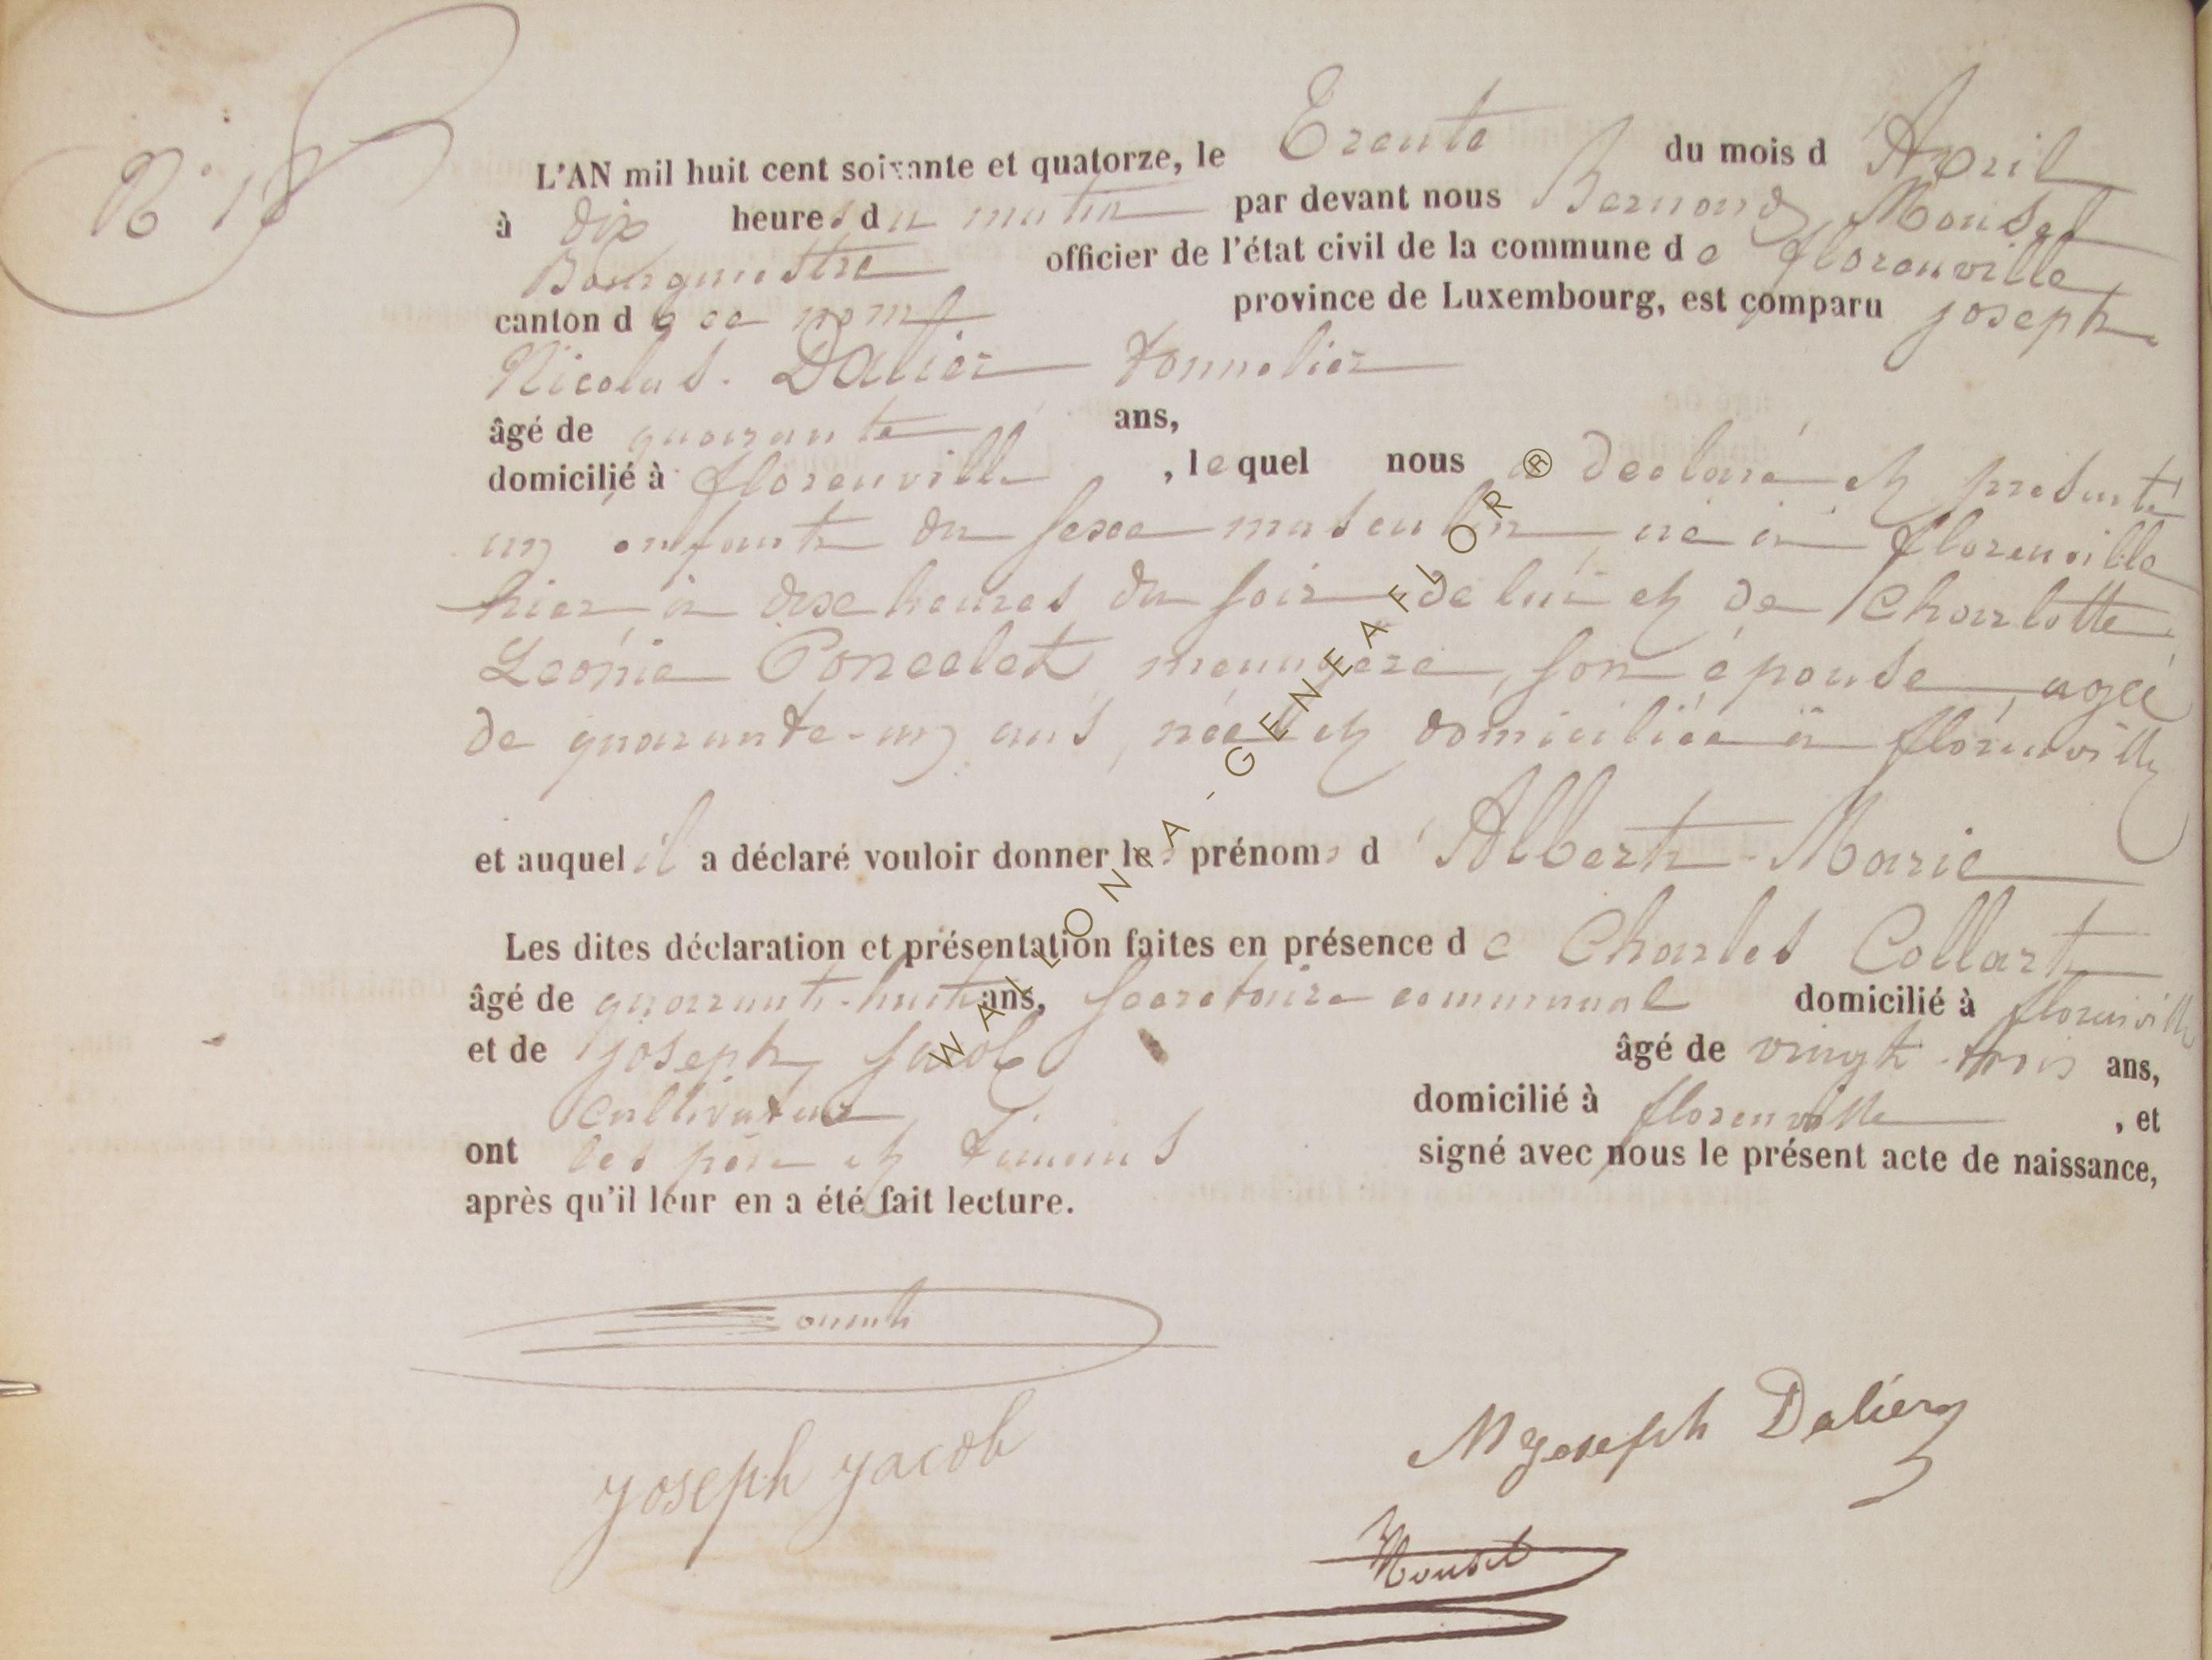 N° 18
L'AN mil huit cent soixante et quatorze, le Trente du mois d'Avril
à dix heures du matin par devant nous Bernard Mousel
Bourgmestre officier de l'état civil de la commune de florenville
canton de ce nom province de Luxembourg, est comparu joseph
Nicolas Dalier tonnelier
âgé de quarante ans,
domicilié à florenville, lequel nous a déclaré et présenté
un enfant du sexe masculin né à florenville
hier à dix heures du soir de lui et de Charlotte
Léonie Poncelet, menagere, son épouse, agée
de quarante-un ans, née et domiciliée à florenville
et auquel il a déclaré vouloir donner les prénoms d'Albert-Marie
Les dites déclaration et présentation faites en présence de Charles Collart
âgé de quarante-huit ans, secretaire communal domicilié à florenville
et de joseph jacob âgé de vingt-trois ans,
cultivateur domicilié à florenville, et
ont les père et témoins signé avec nous le présent acte de naissance,
après qu'il leur en a été fait lecture.
joseph jacob
N joseph Dalier
Mousel
WALLONIA-GENEAFLOR®